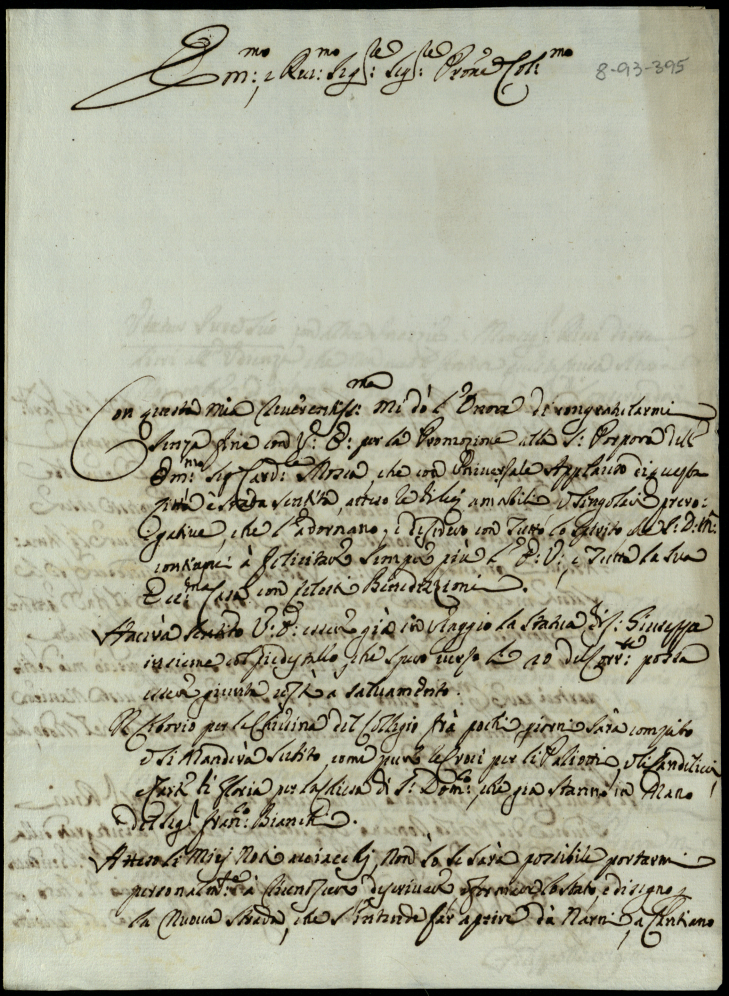 Em:mo e Rev:mo Sig:re Sig:re Prone Col:mo
8-93-395
Con questa mia reverentiss:ma mi dò l'Onore di congratularmi
senza fine con V: E: per la Promozione alla S: Porpora dell'
Em:mo Sig: Card:le Mosca, che con Universale Applauso di questa
Città è stata sentita, atteso le di lei amabili, e singolari prero-
gative, che l'adornano, e desidero con tutto lo spirito che S: D: M:
continui à felicitare sempre più l'E: V:, e tutta la sua
Ecc:ma Casa con celesti Benedizzioni.
Haverà sentito V: E: essere già in viaggio la statua di S: Giuseppe
insieme col piedestallo, che spero verso li 20 del corr:te possa
essere giunta costì a salvamento.
Il Ciborio per la Chiesina del Collegio frà pochi giorni sarà compito
e si manderà subito, come pure le Croci per li Paliotti, e li Candelieri
e Carte di Gloria per la Chiesa di S: Dom:co, che già stanno in mano
del Sig:r Fran:co Bianchi.
Atteso li miei noti, non sò se sarà possibile portarmi
personalm:te à riconoscere descrivere e formare lo stato, e disegno
la nuova strada, che s'intende far aprire dà Narni, a Cantiano